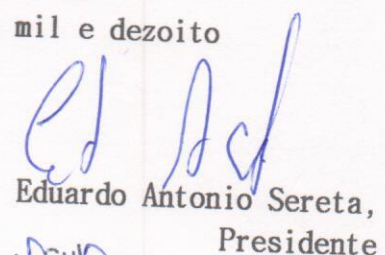 mil e dezoito
Eduardo Antonio Sereta,
Presidente